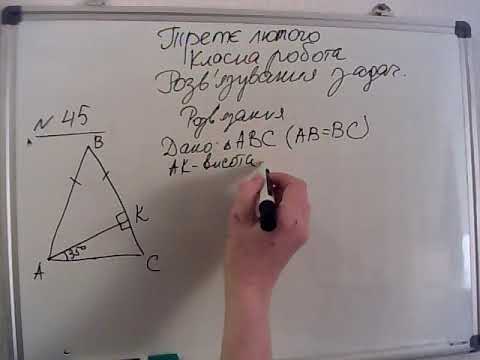 Третє лютого
Класна робота
Розв'язування задач.
№ 45
Розв'язання
Дано: △ABC (AB=BC)
AK-висота
B
K
35°
A
C